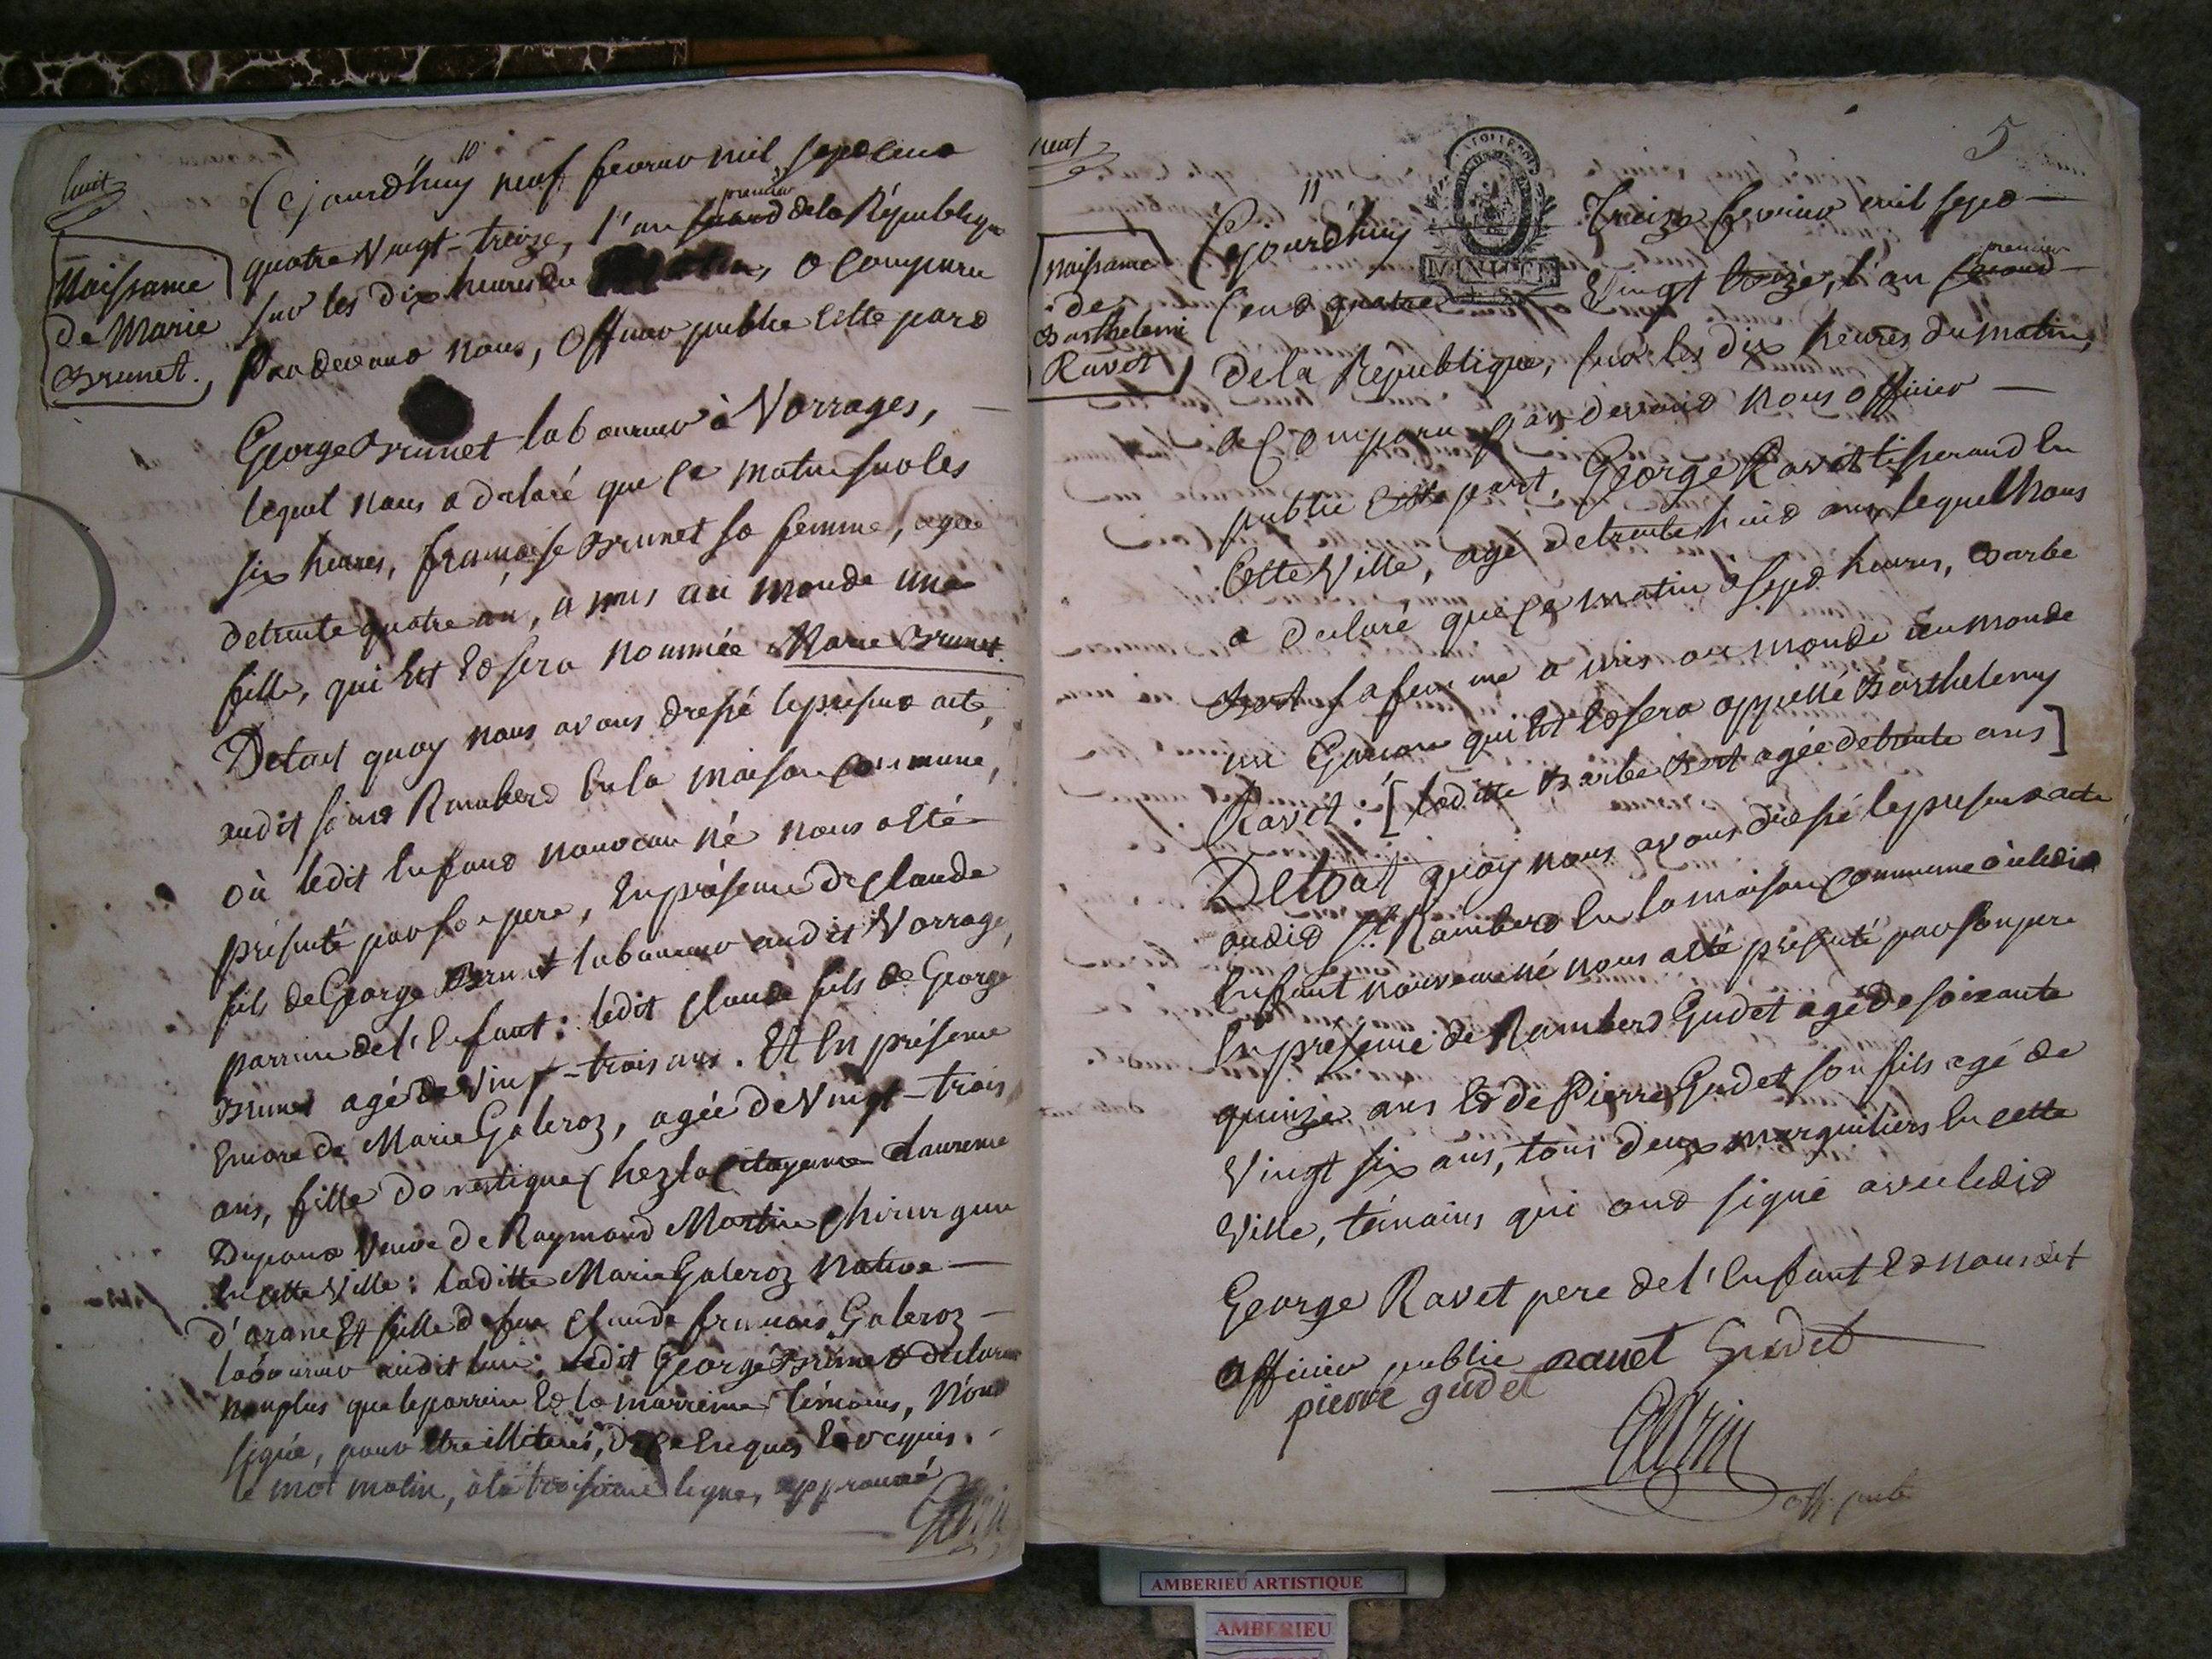 huit
Naissance
de Marie
Brunet.
10
Cejourd'huy neuf fevrier mil sept cent
premier
quatre Vingt-treize, l'an second de la République
sur les dix heures du matin, a comparu
Pardevant nous, Officier public cette part
George Brunet laboureur à Vorrages,
lequel nous a declaré que ce matin sur les
six heures, françoise Brunet sa femme, agée
de trente quatre an, a mis au monde une
fille, qui Est Et sera nommée Marie Brunet.
De tout quoy nous avons dressé le present acte,
audit saint Rambert En la maison Commune,
où ledit Enfant nouveau né nous a Eté
présenté par son pere, En présence de Claude
fils de George Brunet laboureur audit Vorrage,
parrain de l'Enfant: ledit Claude fils de George
Brunet agé de Vingt-trois ans. Et En présence
Encore de Marie Galeroz, agée de Vingt-trois
ans, fille domestique chez la Citoyenne Laurence
Dupont Veuve de Raymond Martin chirurgien
En cette Ville: laditte Marie Galeroz native
d'arane Et fille de feu Claude françois Galeroz
laboureur audit lieu; ledit George Brunet declarant
non plus que le parrain Et la marraine témoins, N'ont
signé, pour être illiterés, de ce Enquis Et requis.
le mot matin, à la troisieme ligne, approuvé
neuf
5
Naissance
de
Barthelemi
Ravet
11
MINUTE
Cejourd'huy Treize fevrier mil sept
premier
Cent quatre Vingt treize, l'an second
de la République, sur les dix heures du matin,
a Comparu par devant nous officier
public cette part, George Ravet tisserand En
Cette Ville, agé de trente huit ans, lequel Nous
a declaré que ce matin a sept heures, Barbe
Bert sa femme a mis au monde au monde
un Garcon qui Est Et sera appellé Barthelemy
Ravet: [laditte Barbe Bert agée de trente ans]
De tout quoy nous avons dressé le present acte
audit St Rambert En la maison Commune où ledit
Enfant nouveau né nous a Eté présenté par son pere
En presence de Rambert Gudet agé de soixante
quinze ans Et de Pierre Gudet son fils agé de
Vingt six ans, tous deux marguiliers En cette
Ville, témoins qui ont signé avec ledit
George Ravet pere de l'Enfant Et nous dit
officier public ravet Gudet
pierre gudet
off. public
AMBERIEU ARTISTIQUE
AMBERIEU